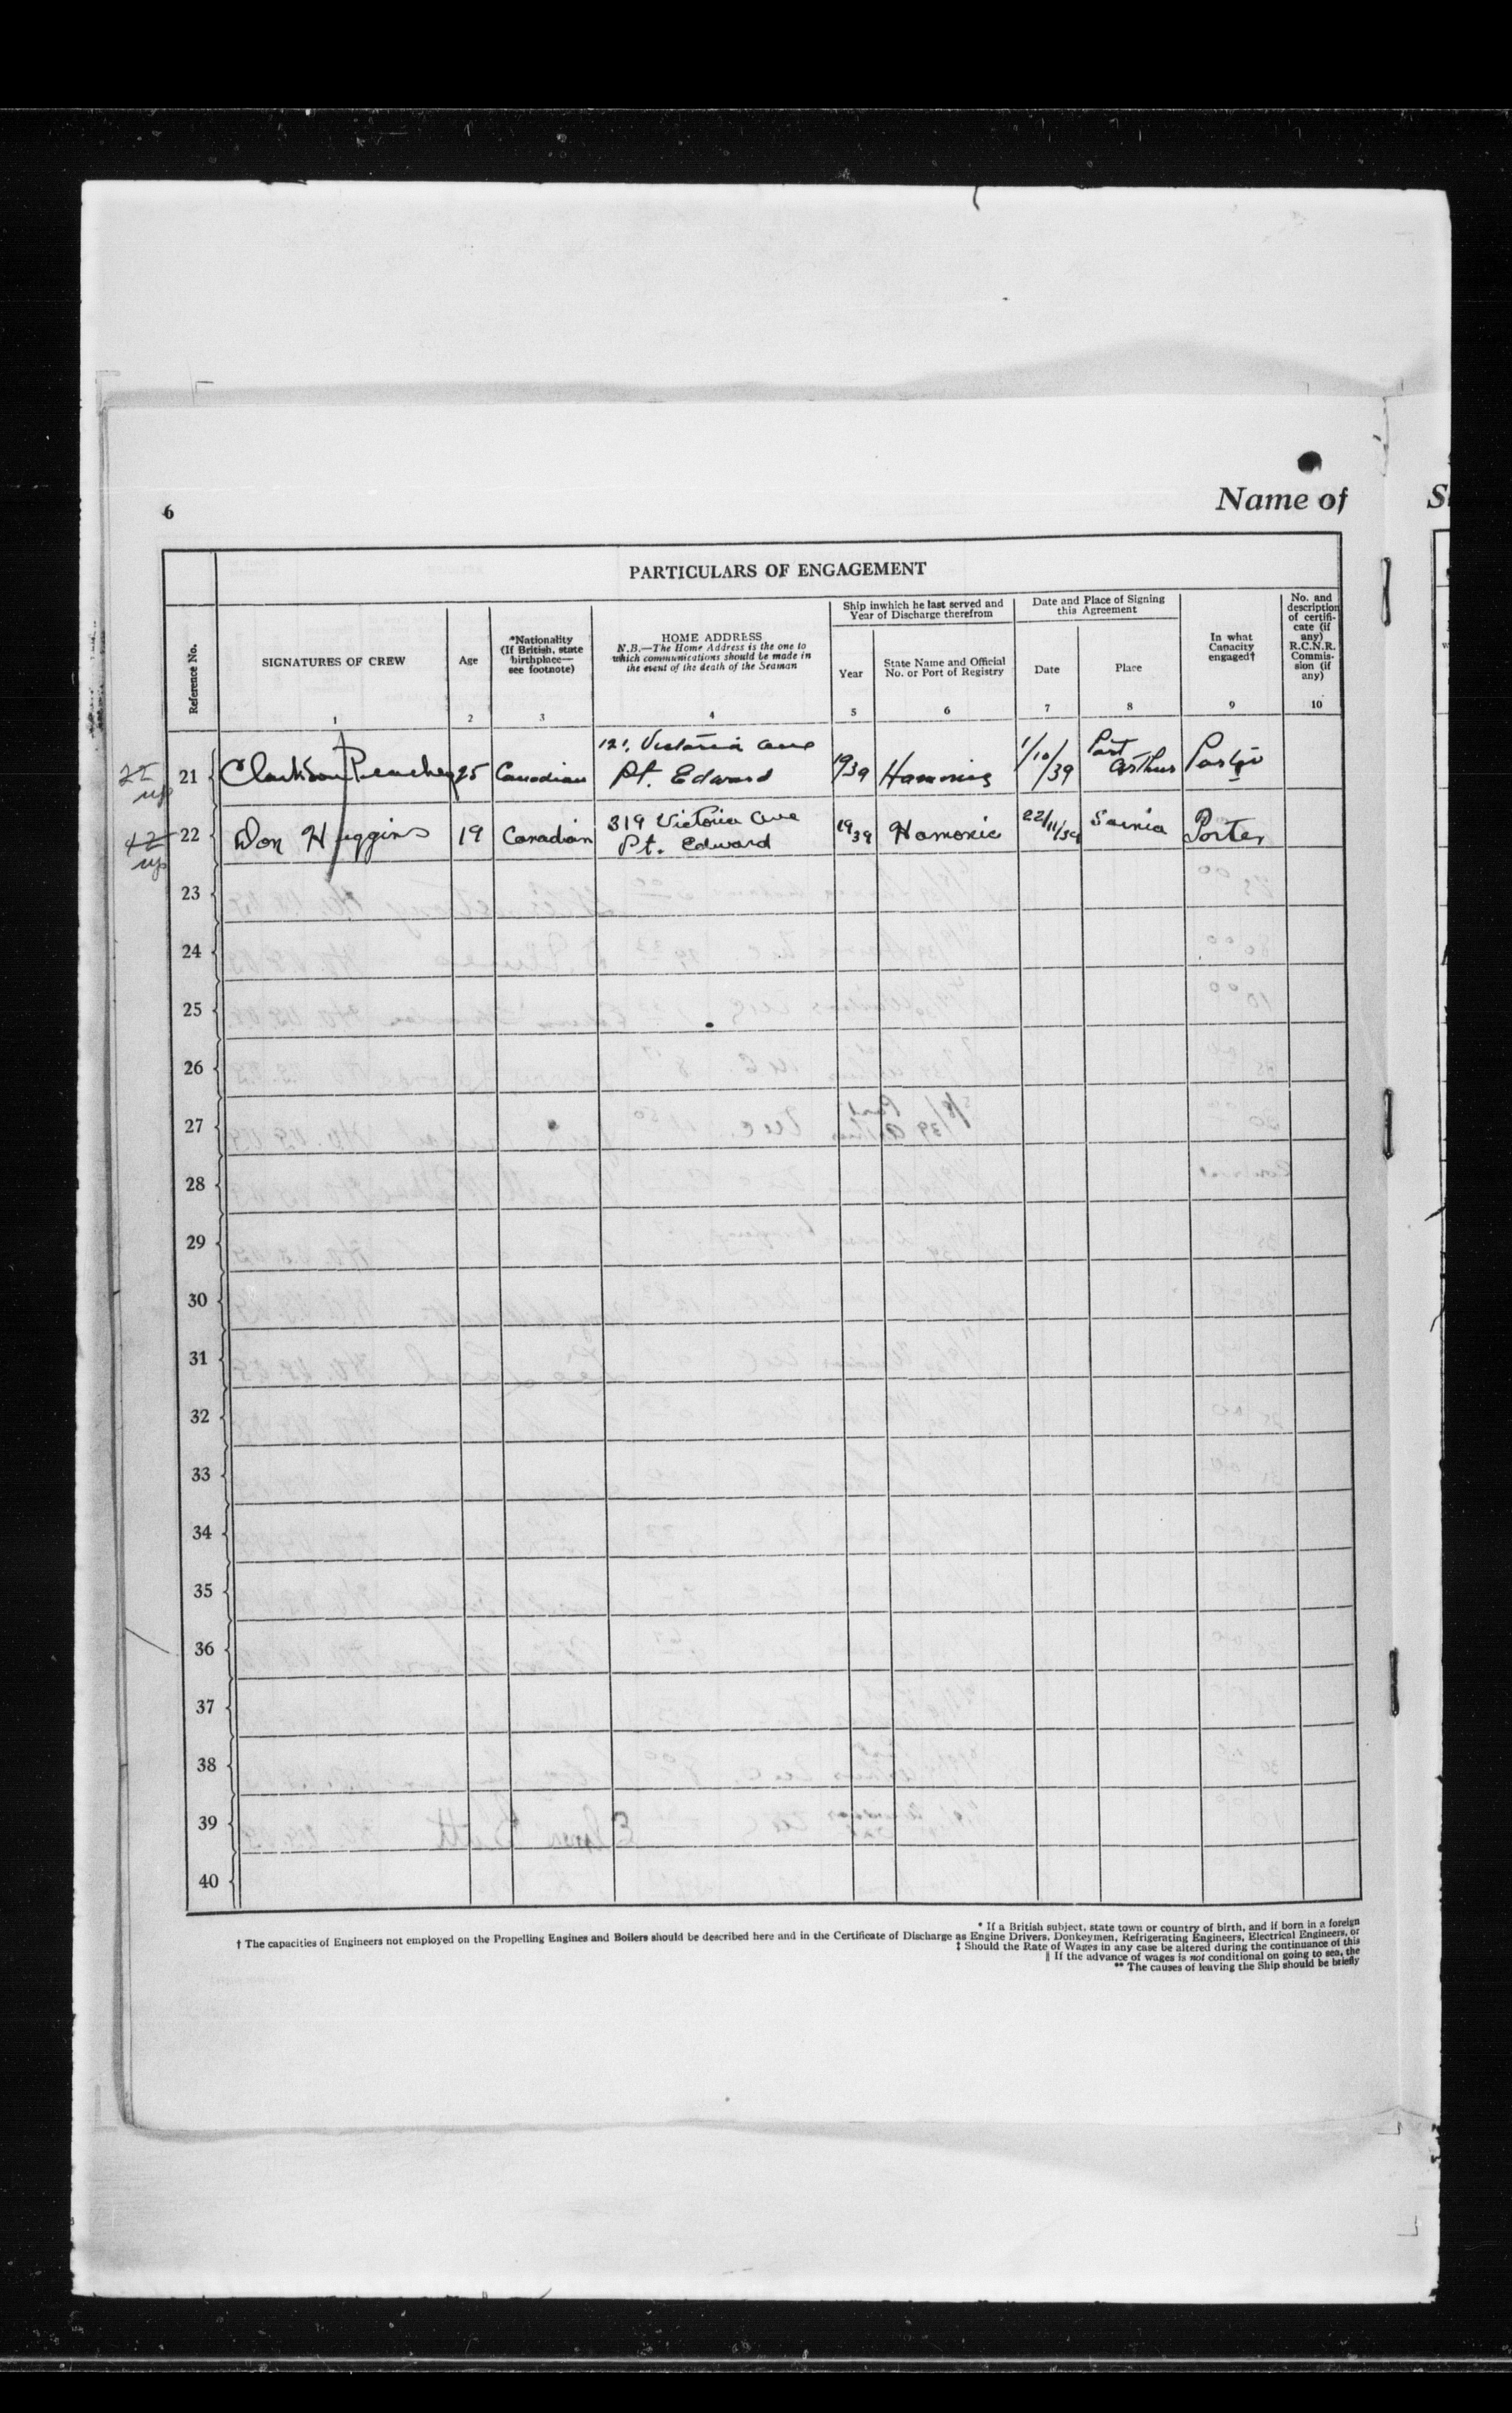 6
Name of
PARTICULARS OF ENGAGEMENT
Reference No.
SIGNATURES OF CREW
1
Age
2
*Nationality
(If British, state
birthplace—
see footnote)
3
HOME ADDRESS
N.B.—The Home Address is the one to
which communications should be made in
the event of the death of the Seaman
4
Ship inwhich he last served and
Year of Discharge therefrom
Year
5
State Name and Official
No. or Port of Registry
6
Date and Place of Signing
this Agreement
Date
7
Place
8
In what
Capacity
engaged†
9
No. and
description
of certifi-
cate (if
any)
R.C.N.R.
Commis-
sion (if
any)
10
21 Clarkson 25 Canadian 121 Victoria ave Pt. Edward 1939 Hamonic 1/10/39 Port Arthur Porter
22 Don Huggins 19 Canadian 319 Victoria Ave Pt. Edward 1939 Hamonic 22/11/39 Sarnia Porter
23
24
25
26
27
28
29
30
31
32
33
34
35
36
37
38
39
40
* If a British subject, state town or country of birth, and if born in a foreign
† The capacities of Engineers not employed on the Propelling Engines and Boilers should be described here and in the Certificate of Discharge as Engine Drivers, Donkeymen, Refrigerating Engineers, Electrical Engineers, or
‡ Should the Rate of Wages in any case be altered during the continuance of this
‖ If the advance of wages is not conditional on going to sea, the
** The causes of leaving the Ship should be briefly